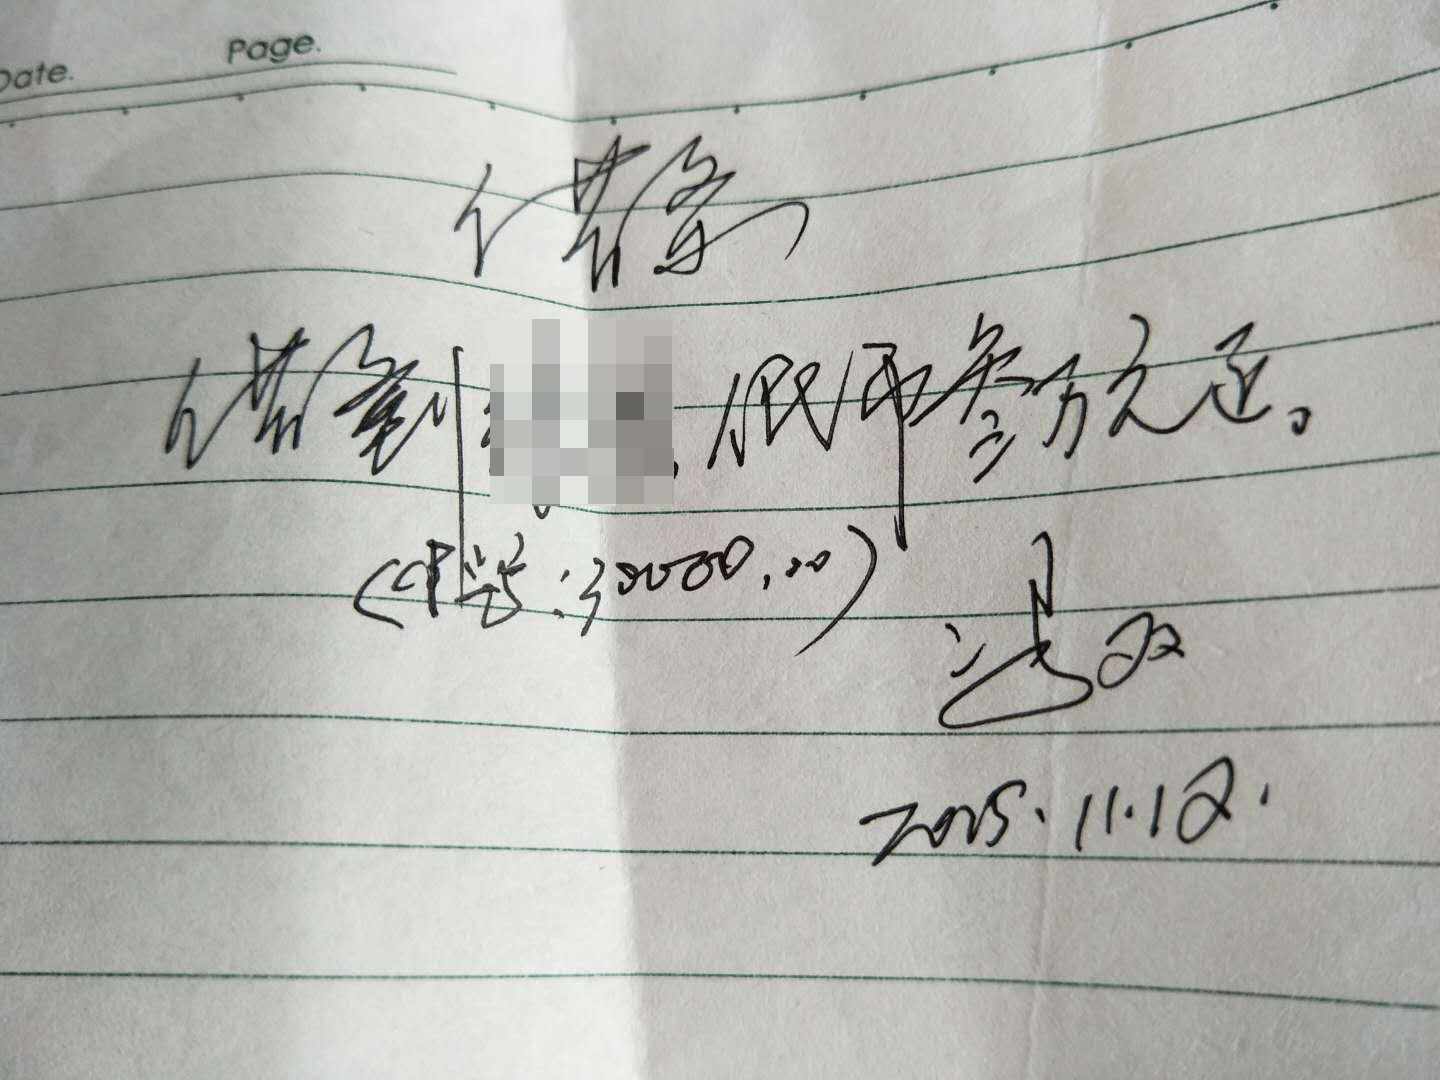 Date. Page.
借条
借条 刘 人民币叁万元正。
(小写:30000.00)
2025.11.12.